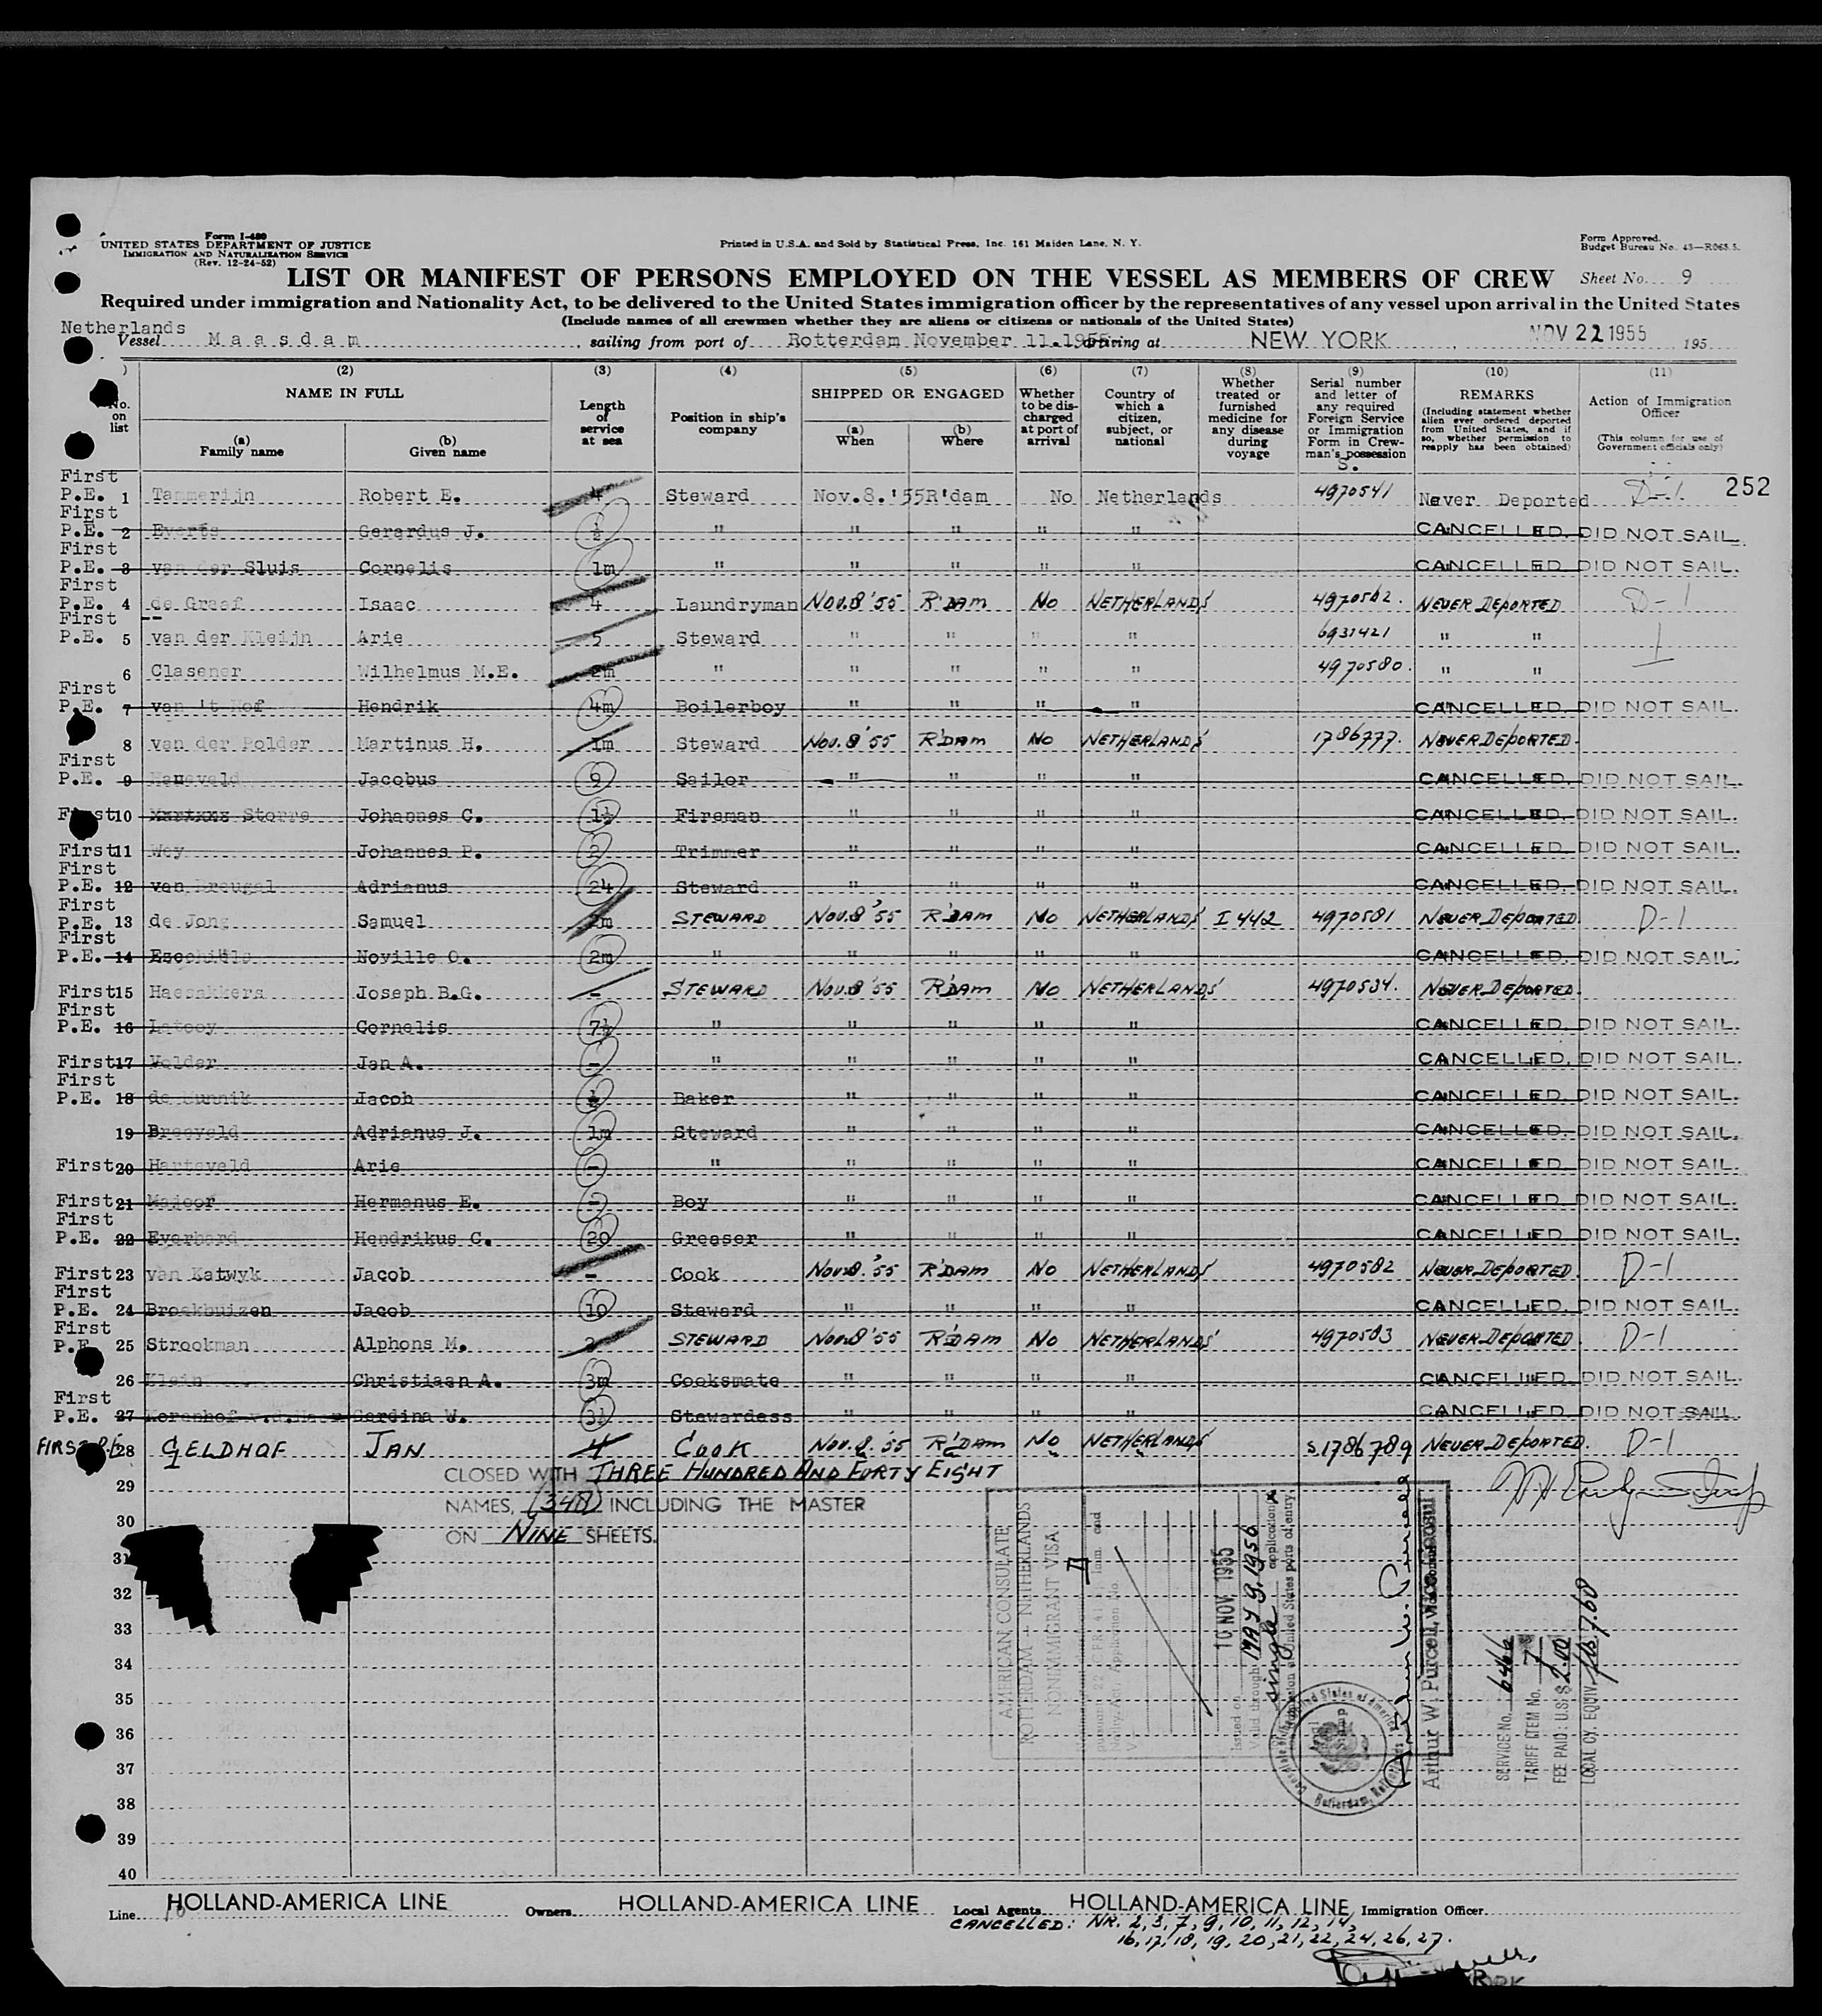 Form I-480
UNITED STATES DEPARTMENT OF JUSTICE
IMMIGRATION AND NATURALIZATION SERVICE
(Rev. 12-24-52)
Printed in U.S.A. and Sold by Statistical Press, Inc. 161 Maiden Lane, N. Y.
Form Approved.
Budget Bureau No. 43—R065.5.
LIST OR MANIFEST OF PERSONS EMPLOYED ON THE VESSEL AS MEMBERS OF CREW
Sheet No. 9
Required under immigration and Nationality Act, to be delivered to the United States immigration officer by the representatives of any vessel upon arrival in the United States
(Include names of all crewmen whether they are aliens or citizens or nationals of the United States)
Netherlands
Vessel Maasdam, sailing from port of Rotterdam November 11.1955 arriving at NEW YORK, NOV 22 1955 195
(2) (3) (4) (5) (6) (7) (8) (9) (10) (11)
No. on list
NAME IN FULL
(a) Family name
(b) Given name
Length of service at sea
Position in ship's company
SHIPPED OR ENGAGED
(a) When
(b) Where
Whether to be discharged at port of arrival
Country of which a citizen, subject, or national
Whether treated or furnished medicine for any disease during voyage
Serial number and letter of any required Foreign Service or Immigration Form in Crewman's possession
S.
REMARKS
(Including statement whether alien ever ordered deported from United States, and if so, whether permission to reapply has been obtained)
Action of Immigration Officer
(This column for use of Government officials only)
First P.E. 1 Tammerijn Robert E. 4 Steward Nov.8.'55 R'dam No Netherlands 4970541 Never Deported D-1 252
First P.E. 2 Everts Gerardus J. ½ " " " " " CANCELLED. DID NOT SAIL.
First P.E. 3 van der Sluis Cornelis 1m " " " " " CANCELLED. DID NOT SAIL.
First P.E. 4 de Graaf Isaac 4 Laundryman NOV.8'55 R'DAM No NETHERLANDS 4970562. NEVER DEPORTED D-1
First P.E. 5 van der Kleijn Arie 5 Steward " " " " 6931421 " "
6 Clasener Wilhelmus M.E. 2m " " " " " 4970580. " "
First P.E. 7 van 't Hof Hendrik 4m Boilerboy " " " " CANCELLED. DID NOT SAIL.
8 van der Polder Martinus H. 1m Steward NOV.8'55 R'DAM No NETHERLANDS 1786777. NEVER DEPORTED.
First P.E. 9 Jacobus 9 Sailor " " " " CANCELLED. DID NOT SAIL.
First 10 Storre Johannes C. 1½ Fireman " " " " CANCELLED. DID NOT SAIL.
First 11 Wey Johannes P. 2 Trimmer " " " " CANCELLED. DID NOT SAIL.
First P.E. 12 van Breugal Adrianus 24 Steward " " " " CANCELLED. DID NOT SAIL.
First P.E. 13 de Jong Samuel 2m STEWARD NOV.8'55 R'DAM No NETHERLANDS I 442 4970581 NEVER DEPORTED. D-1
First P.E. 14 Noville O. 2m " " " " " CANCELLED. DID NOT SAIL.
First 15 Haesakkers Joseph B.G. - STEWARD NOV.8'55 R'DAM No NETHERLANDS 4970534. NEVER DEPORTED.
First P.E. 16 Latooy Cornelis 7½ " " " " " CANCELLED. DID NOT SAIL.
First 17 Velder Jan A. - " " " " " CANCELLED. DID NOT SAIL.
First P.E. 18 de Munnik Jacob Baker " " " " CANCELLED. DID NOT SAIL.
19 Breeveld Adrianus J. 1m Steward " " " " CANCELLED. DID NOT SAIL.
First 20 Harteveld Arie - " " " " " CANCELLED. DID NOT SAIL.
First 21 Majoor Hermanus E. - Boy " " " " CANCELLED. DID NOT SAIL.
First P.E. 22 Everhard Hendrikus C. 20 Greaser " " " " CANCELLED. DID NOT SAIL.
First 23 van Katwyk Jacob - Cook NOV.8.'55 R'DAM No NETHERLANDS 4970582 NEVER DEPORTED. D-1
First P.E. 24 Broekhuizen Jacob 10 Steward " " " " CANCELLED. DID NOT SAIL.
First P.E. 25 Strookman Alphons M. STEWARD NOV.8'55 R'DAM No NETHERLANDS 4970583 NEVER DEPORTED. D-1
26 Klein Christiaan A. 3m Cooksmate " " " " CANCELLED. DID NOT SAIL.
First P.E. 27 Gerdina W. 3½ Stewardess " " " " CANCELLED. DID NOT SAIL.
FIRST P.E. 28 GELDHOF JAN 4 COOK NOV.8.'55 R'DAM No NETHERLANDS S1786789 NEVER DEPORTED. D-1
CLOSED WITH THREE HUNDRED AND FORTY EIGHT
29
NAMES, (348) INCLUDING THE MASTER
30
ON NINE SHEETS.
31
32
33
34
35
36
37
38
39
40
AMERICAN CONSULATE
ROTTERDAM - NETHERLANDS
NONIMMIGRANT VISA
D
Issued on 10 NOV 1955
Valid through MAY 9, 1956
single application
admission United States ports of entry.
Arthur W. Purcell
Arthur W. Purcell, Vice Consul
SERVICE No. 6466
TARIFF ITEM No. 7
FEE PAID: U.S. $ 2.00
LOCAL CY. EQUIV. fls. 7.60
Line HOLLAND-AMERICA LINE Owners HOLLAND-AMERICA LINE Local Agents HOLLAND-AMERICA LINE Immigration Officer
CANCELLED: NR. 2, 3, 7, 9, 10, 11, 12, 14,
16, 17, 18, 19, 20, 21, 22, 24, 26, 27.